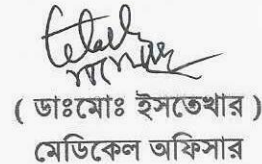 ( ডাঃমোঃ ইসতেখার )
মেডিকেল অফিসার